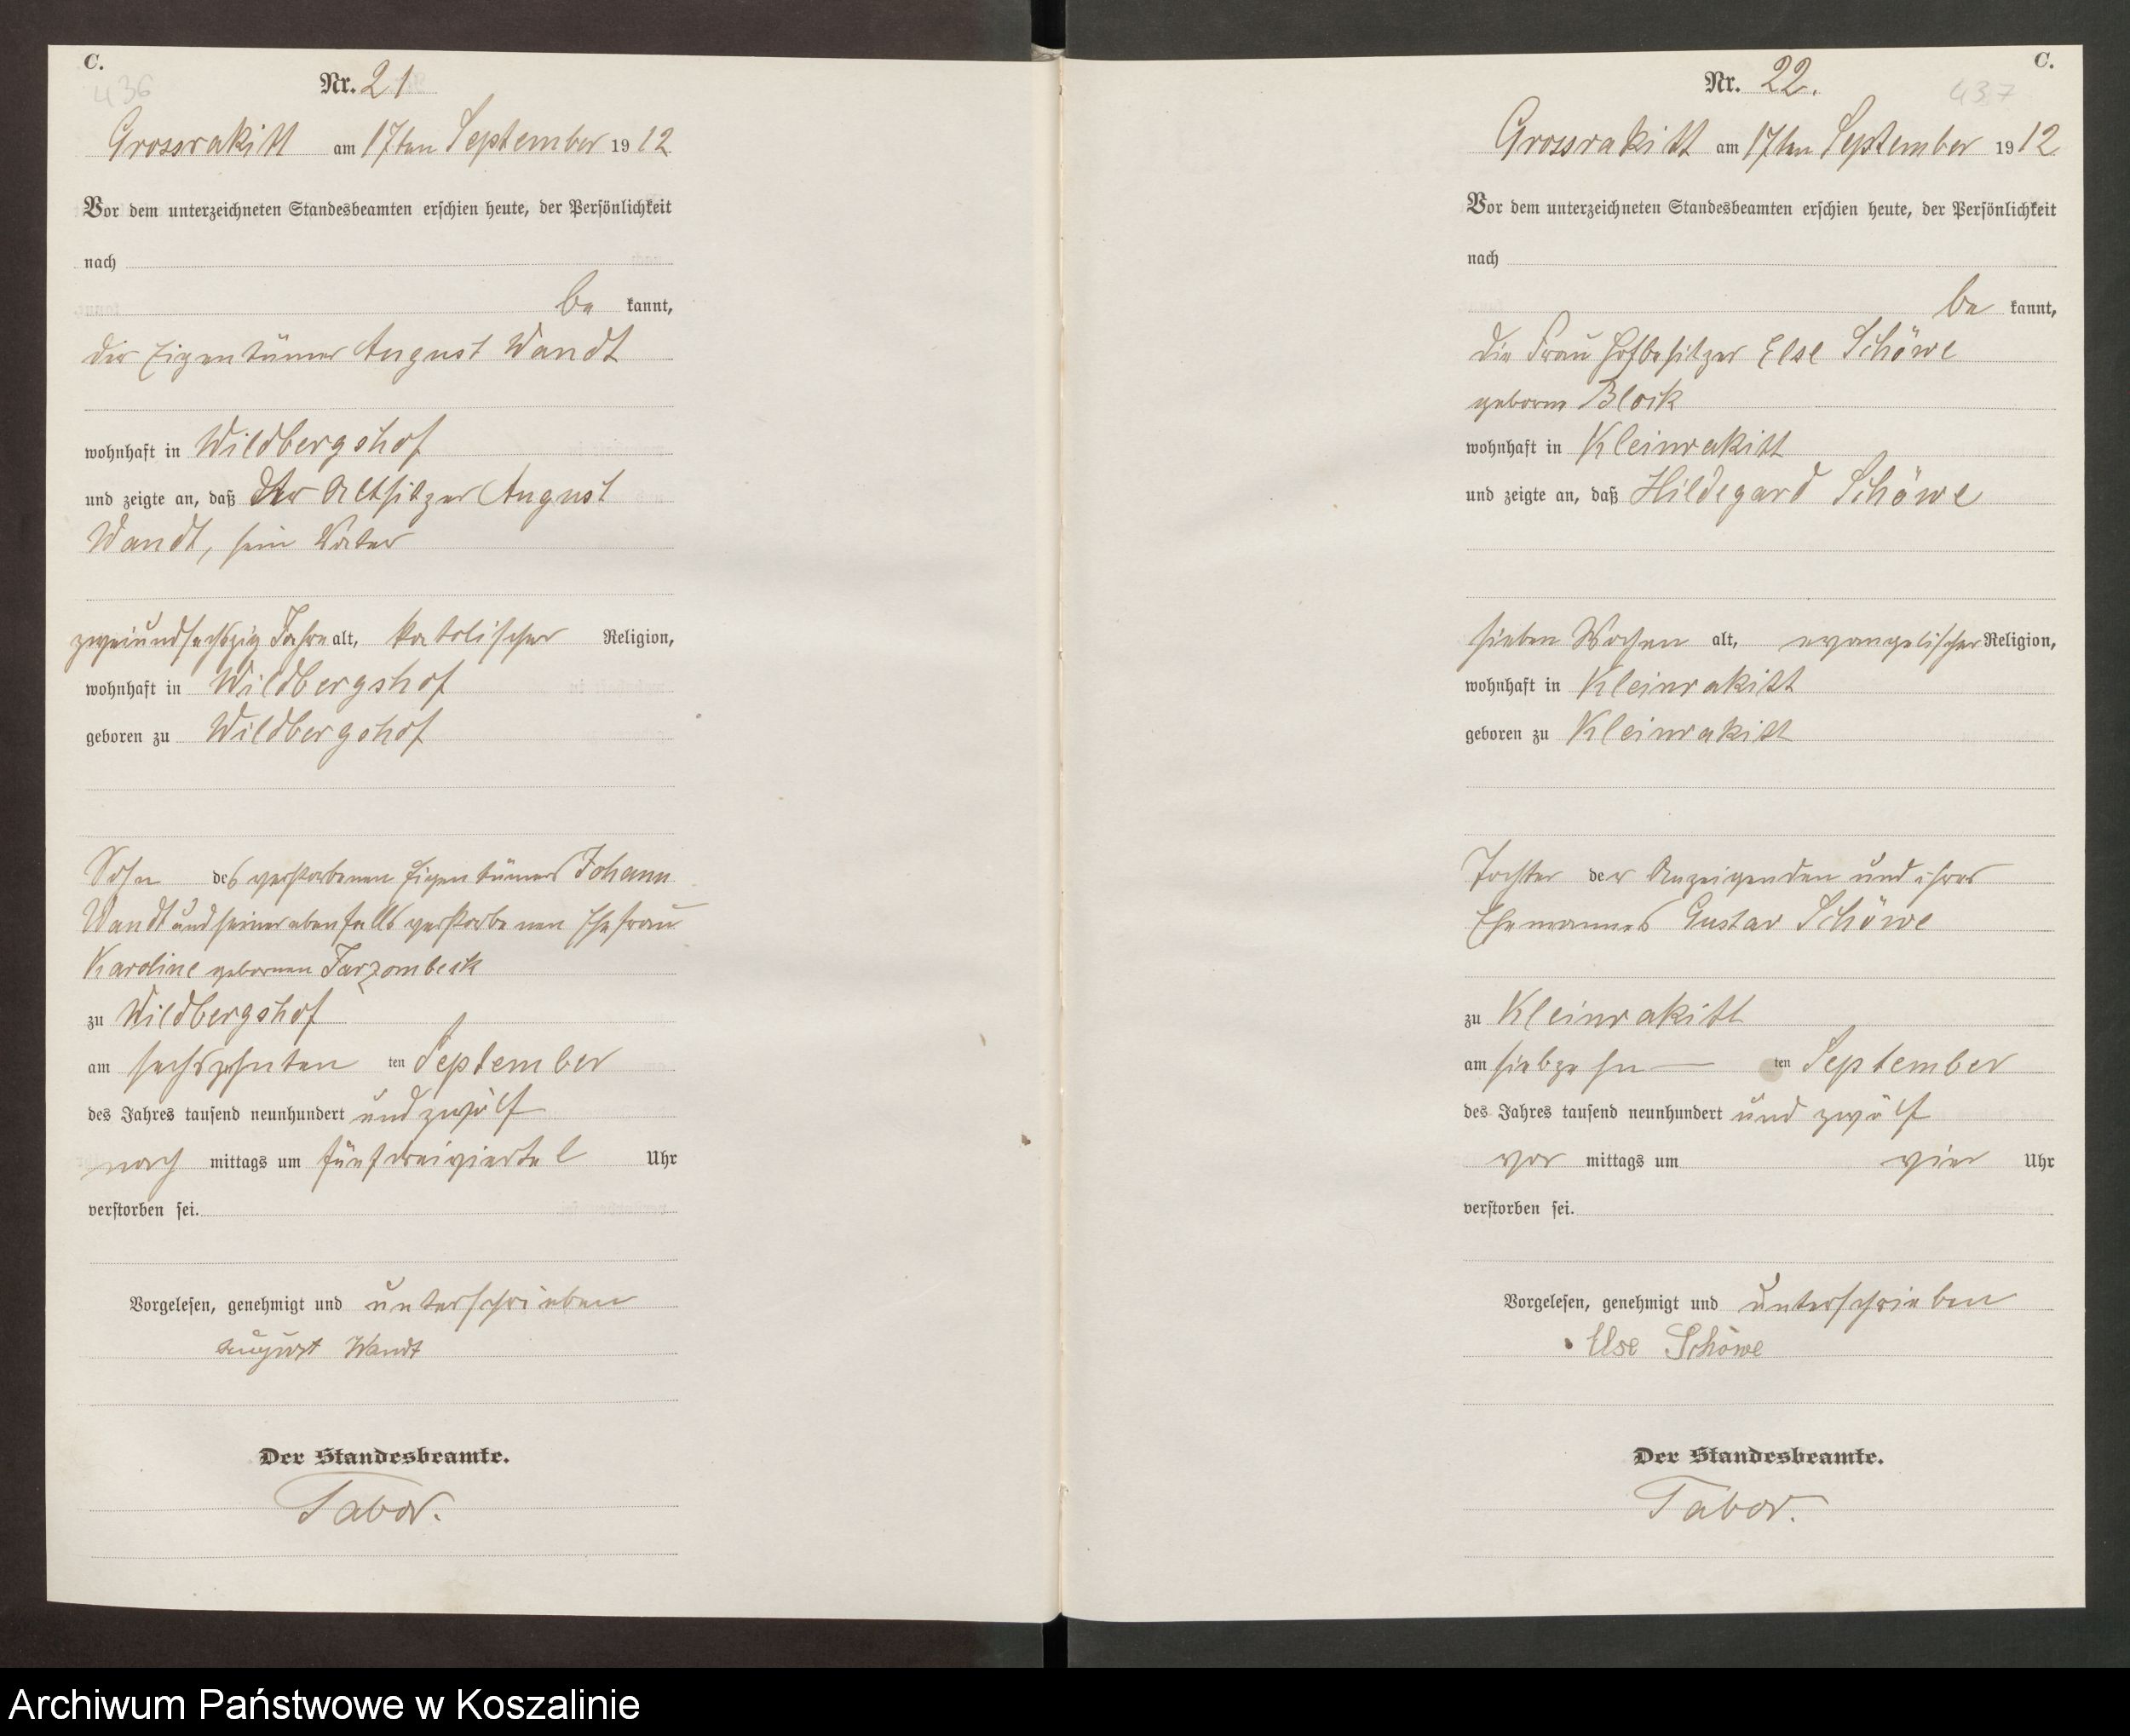 C.
436
Nr. 21
Grossrakitt am 17ten September 1912
Vor dem unterzeichneten Standesbeamten erschien heute, der Persönlichkeit
nach
be kannt,
der Eigentümer August Wandt
wohnhaft in Wildbergshof
und zeigte an, daß der Altsitzer August
Wandt, sein Vater
zweiundsechszig Jahre alt, katolischer Religion,
wohnhaft in Wildbergshof
geboren zu Wildbergshof
Sohn des verstorbenen Eigentümers Johann
Wandt und seiner ebenfalls verstorbenen Ehefrau
Karoline gebornen Jarzombeck
zu Wildbergshof
am sechszehnten ten September
des Jahres tausend neunhundert und zwölf
nach mittags um fünf dreiviertel Uhr
verstorben sei.
Vorgelesen, genehmigt und unterschrieben
August Wandt
Der Standesbeamte.
Tabor.
C.
437
Nr. 22.
Grossrakitt am 17ten September 1912
Vor dem unterzeichneten Standesbeamten erschien heute, der Persönlichkeit
nach
be kannt,
die Frau Hofbesitzer Else Schöwe
geborne Block
wohnhaft in Kleinrakitt
und zeigte an, daß Hildegard Schöwe
sieben Wochen alt, evangelischer Religion,
wohnhaft in Kleinrakitt
geboren zu Kleinrakitt
Tochter der Anzeigenden und ihres
Ehemannes Gustav Schöwe
zu Kleinrakitt
am siebzehn ten September
des Jahres tausend neunhundert und zwölf
vor mittags um vier Uhr
verstorben sei.
Vorgelesen, genehmigt und unterschrieben
Else Schöwe
Der Standesbeamte.
Tabor.
Archiwum Państwowe w Koszalinie